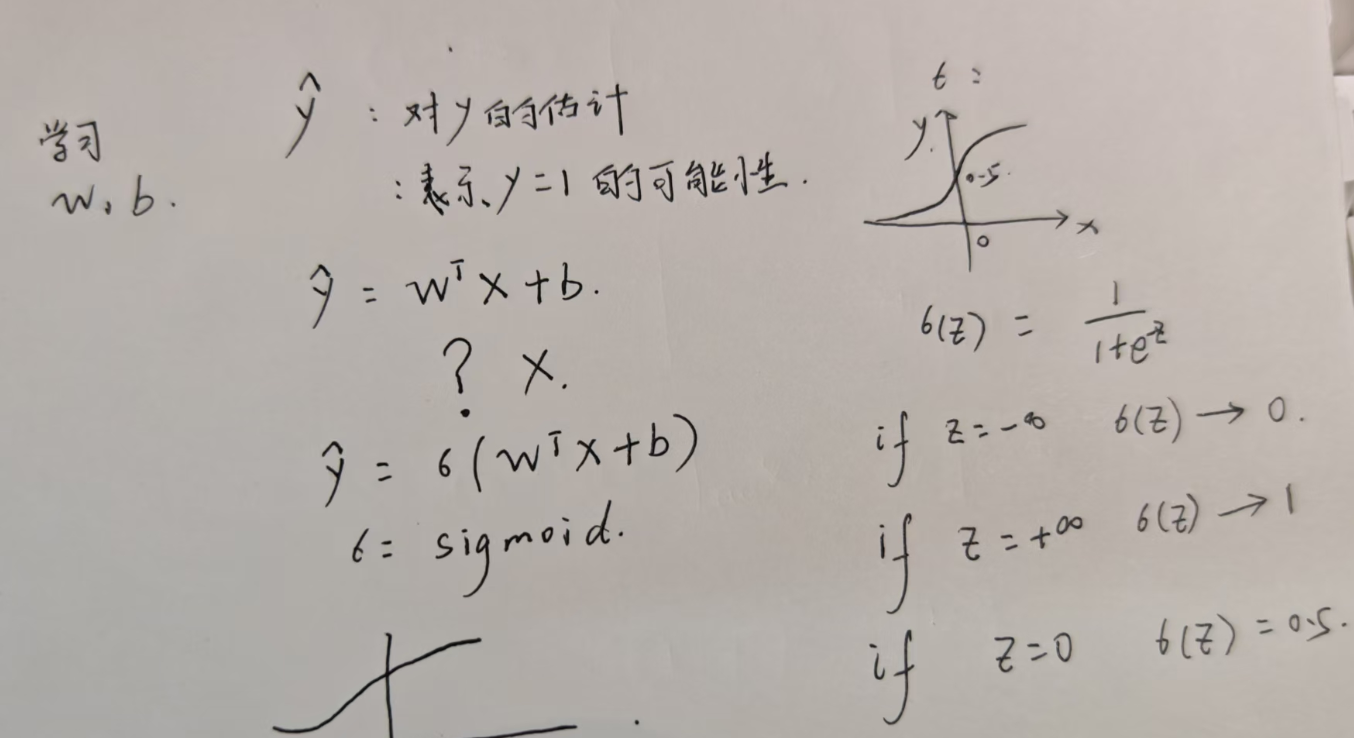 学习
w, b.
ŷ : 对y的估计
: 表示y=1的可能性.
ŷ = wᵀx+b.
? x.
ŷ = 6(wᵀx+b)
6= sigmoid.
6:
y.
0.5.
0
x
6(z) = 1/(1+e^-z)
if z=-∞ 6(z) → 0.
if z=+∞ 6(z) → 1
if z=0 6(z) = 0.5.